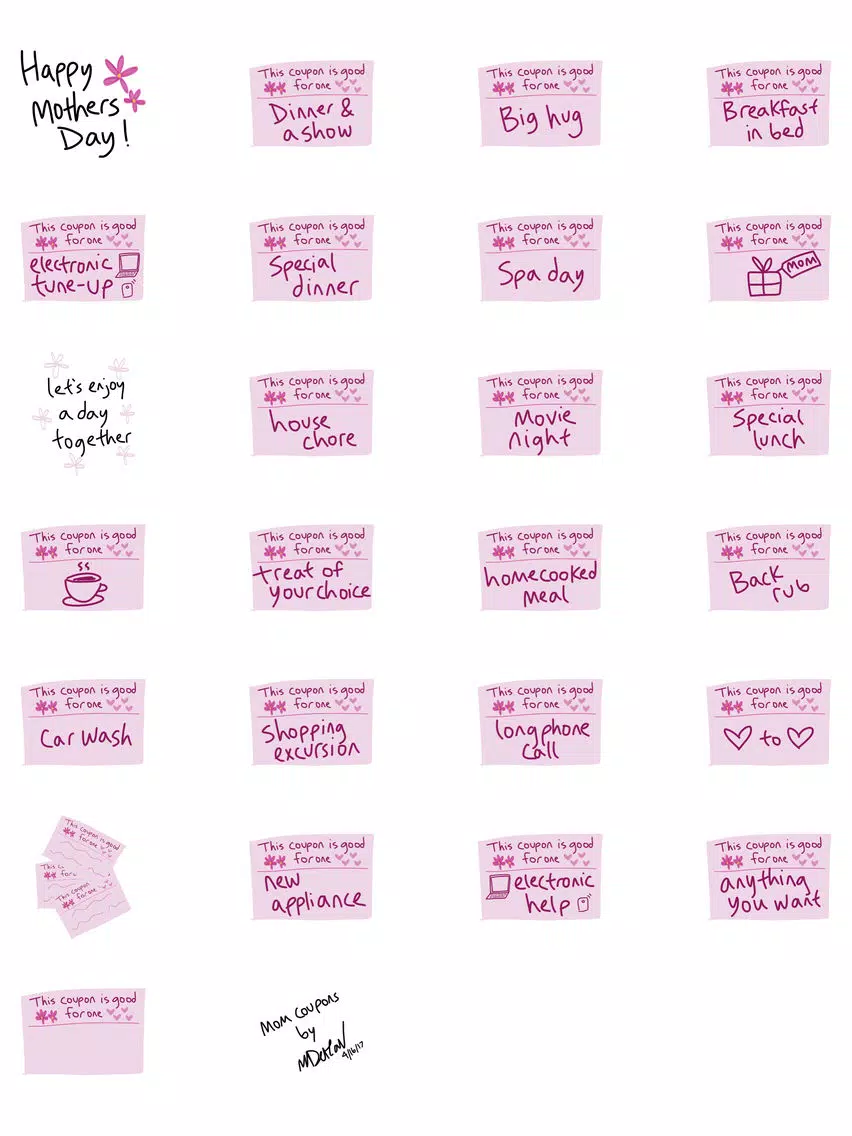 Happy
Mothers
Day!
This coupon is good
for one
Dinner &
a show
This coupon is good
for one
Big hug
This coupon is good
for one
Breakfast
in bed
This coupon is good
for one
electronic
tune-up
This coupon is good
for one
Special
dinner
This coupon is good
for one
Spa day
This coupon is good
for one
MOM
let's enjoy
a day
together
This coupon is good
for one
house
chore
This coupon is good
for one
Movie
night
This coupon is good
for one
Special
lunch
This coupon is good
for one
This coupon is good
for one
treat of
your choice
This coupon is good
for one
homecooked
meal
This coupon is good
for one
Back
rub
This coupon is good
for one
Car Wash
This coupon is good
for one
Shopping
excursion
This coupon is good
for one
long phone
call
This coupon is good
for one
to
This coupon is good
for one
This
for
This coupon
for one
This coupon is good
for one
new
appliance
This coupon is good
for one
electronic
help
This coupon is good
for one
anything
you want
This coupon is good
for one
Mom Coupons
by
4/16/17